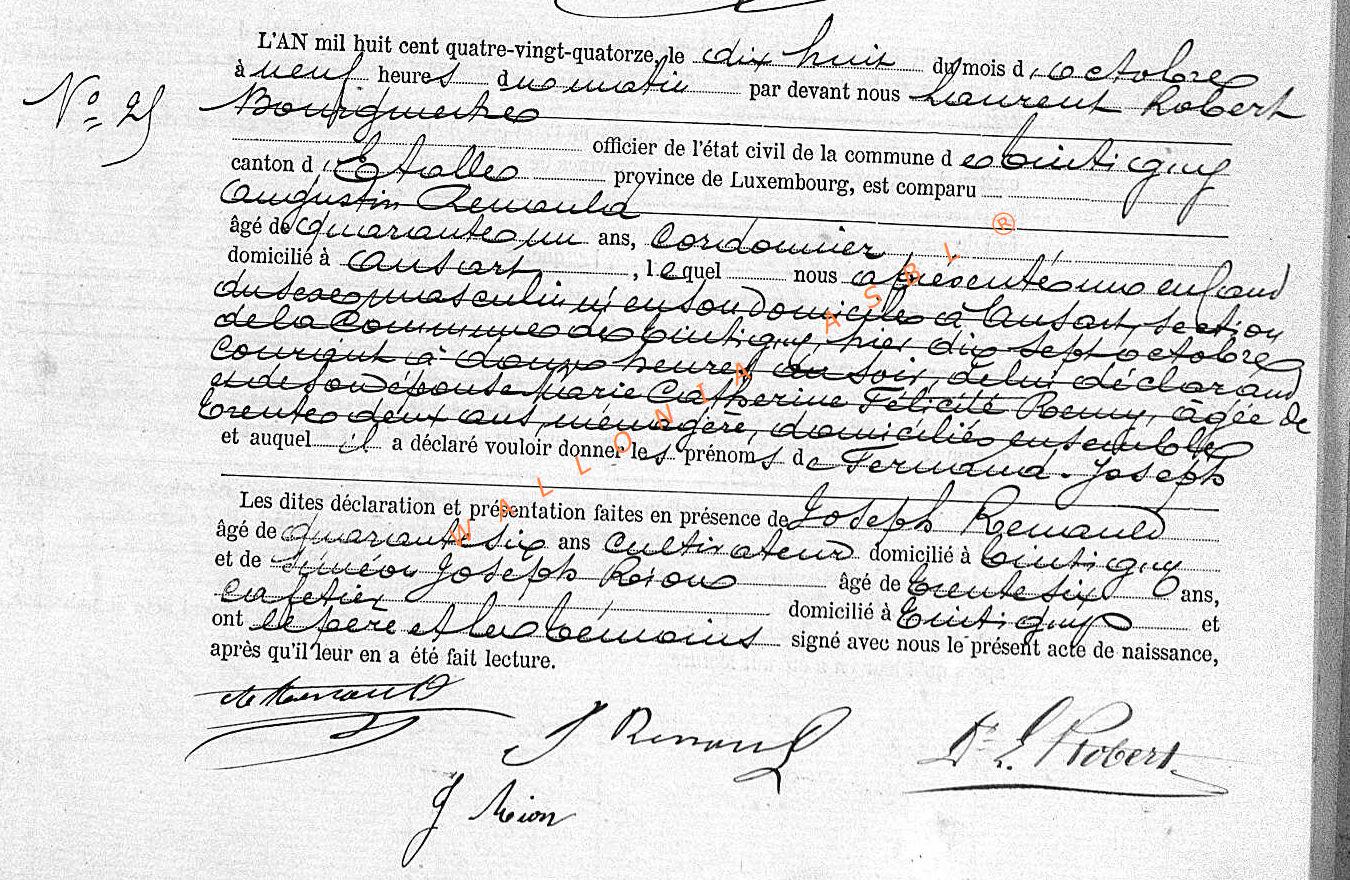 L'AN mil huit cent quatre-vingt-quatorze, le dix huit du mois d'octobre
à neuf heures du matin par devant nous Laurent Robert
N° 25
Bourgmestre
officier de l'état civil de la commune de Tintigny
canton d'Etalle province de Luxembourg, est comparu
Augustin Renauld
âgé de quarante un ans, cordonnier
domicilié à Ansart, lequel nous a présenté un enfant
du sexe masculin né en son domicile à Ansart, section
de la Commune de Tintigny, hier dix sept octobre
courant à heures du soir, de lui déclarant
et de son épouse Marie Catherine Félicité Remy, âgée de
trente deux ans, ménagère, domiciliés ensemble
et auquel il a déclaré vouloir donner les prénoms de Fernand-Joseph
Les dites déclaration et présentation faites en présence de Joseph Renauld
âgé de quarante six ans cultivateur domicilié à Tintigny
et de Siméon Joseph Rion âgé de trente six ans,
cafetier domicilié à Tintigny et
ont le père et les témoins signé avec nous le présent acte de naissance,
après qu'il leur en a été fait lecture.
A Renauld
J Renauld
Dr L. Robert
J Rion
WALLONIA ASBL ®